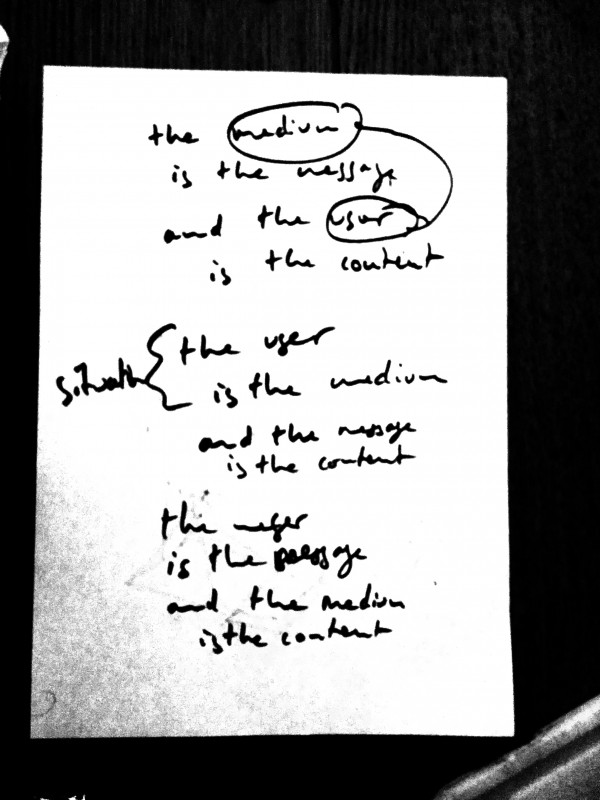 the medium
is the message
and the user
is the content
the user
is the medium
and the message
is the content
the
is the message
and the medium
is the content